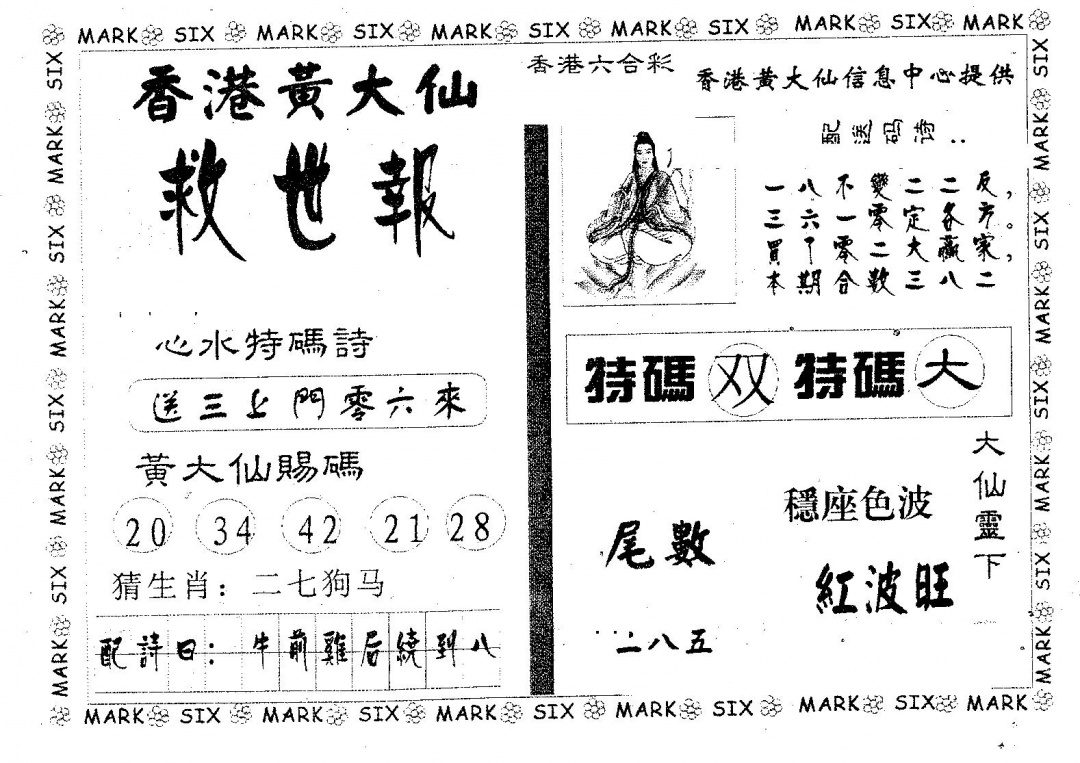 MARK SIX MARK SIX MARK SIX MARK SIX MARK SIX MARK
香港黃大仙
救世報
心水特碼詩
送三上門零六來
黃大仙賜碼
20 34 42 21 28
猜生肖：二七狗马
配詩曰：牛前雞后繞到八
香港六合彩
香港黃大仙信息中心提供
配送码诗：
一八不變二二反，
三六一零定各方。
買丁零二大贏家，
本期合数三八二
特碼双 特碼大
大仙靈下
穩座色波
紅波旺
尾數
二八五
MARK SIX MARK SIX MARK SIX MARK SIX MARK SIX MARK
SIX MARK SIX MARK SIX MARK SIX MARK
SIX MARK SIX MARK SIX MARK SIX MARK